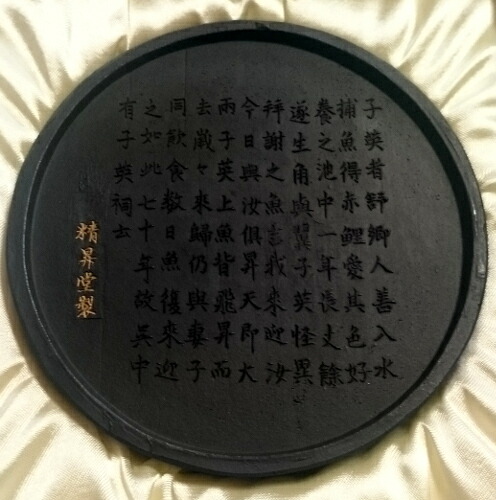 子英者舒鄉人善入水
捕魚得赤鯉愛其色好
養之池中一年長丈餘
遂生角與翼子英怪異
拜謝之魚言我來迎汝
今日與汝俱昇天即大
雨子英上魚背飛昇而
去歲々來歸仍與妻子
同飲食数日魚復來迎
之如此七十年故吳中
有子英祠云
精昇堂製